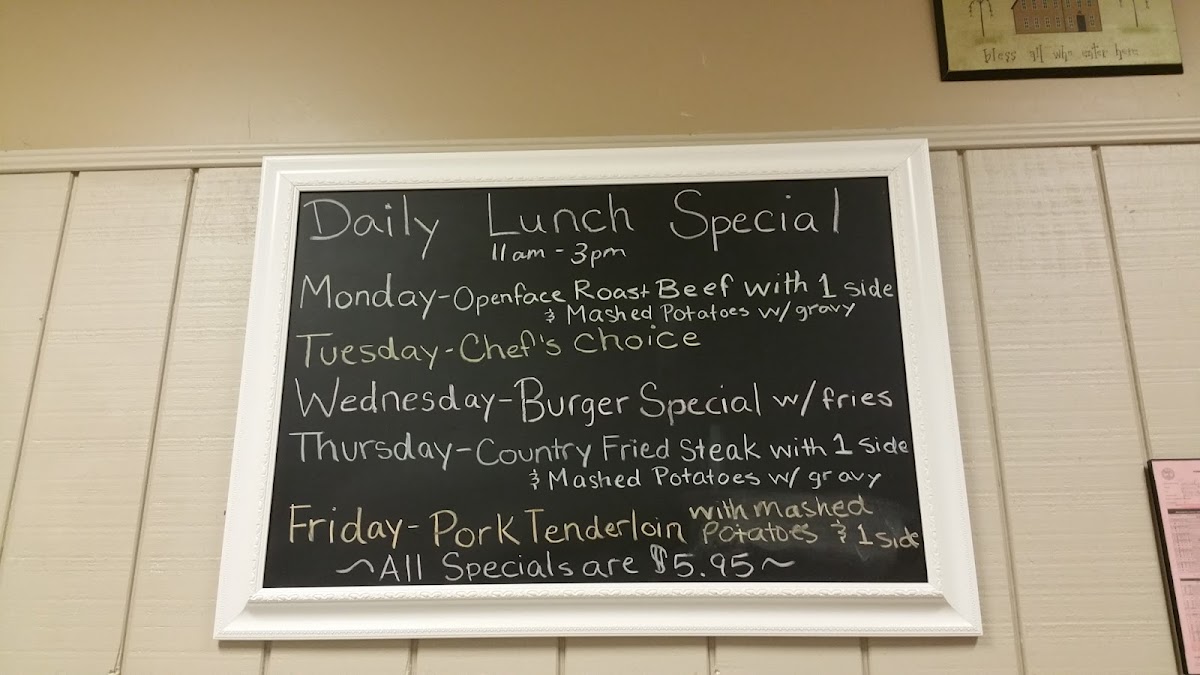 bless all who enter here
Daily Lunch Special
11am - 3pm
Monday - Openface Roast Beef with 1 side
& Mashed Potatoes w/ gravy
Tuesday - Chef's Choice
Wednesday - Burger Special w/ fries
Thursday - Country Fried Steak with 1 side
& Mashed Potatoes w/ gravy
Friday - Pork Tenderloin with mashed
potatoes & 1 side
~All Specials are $5.95~